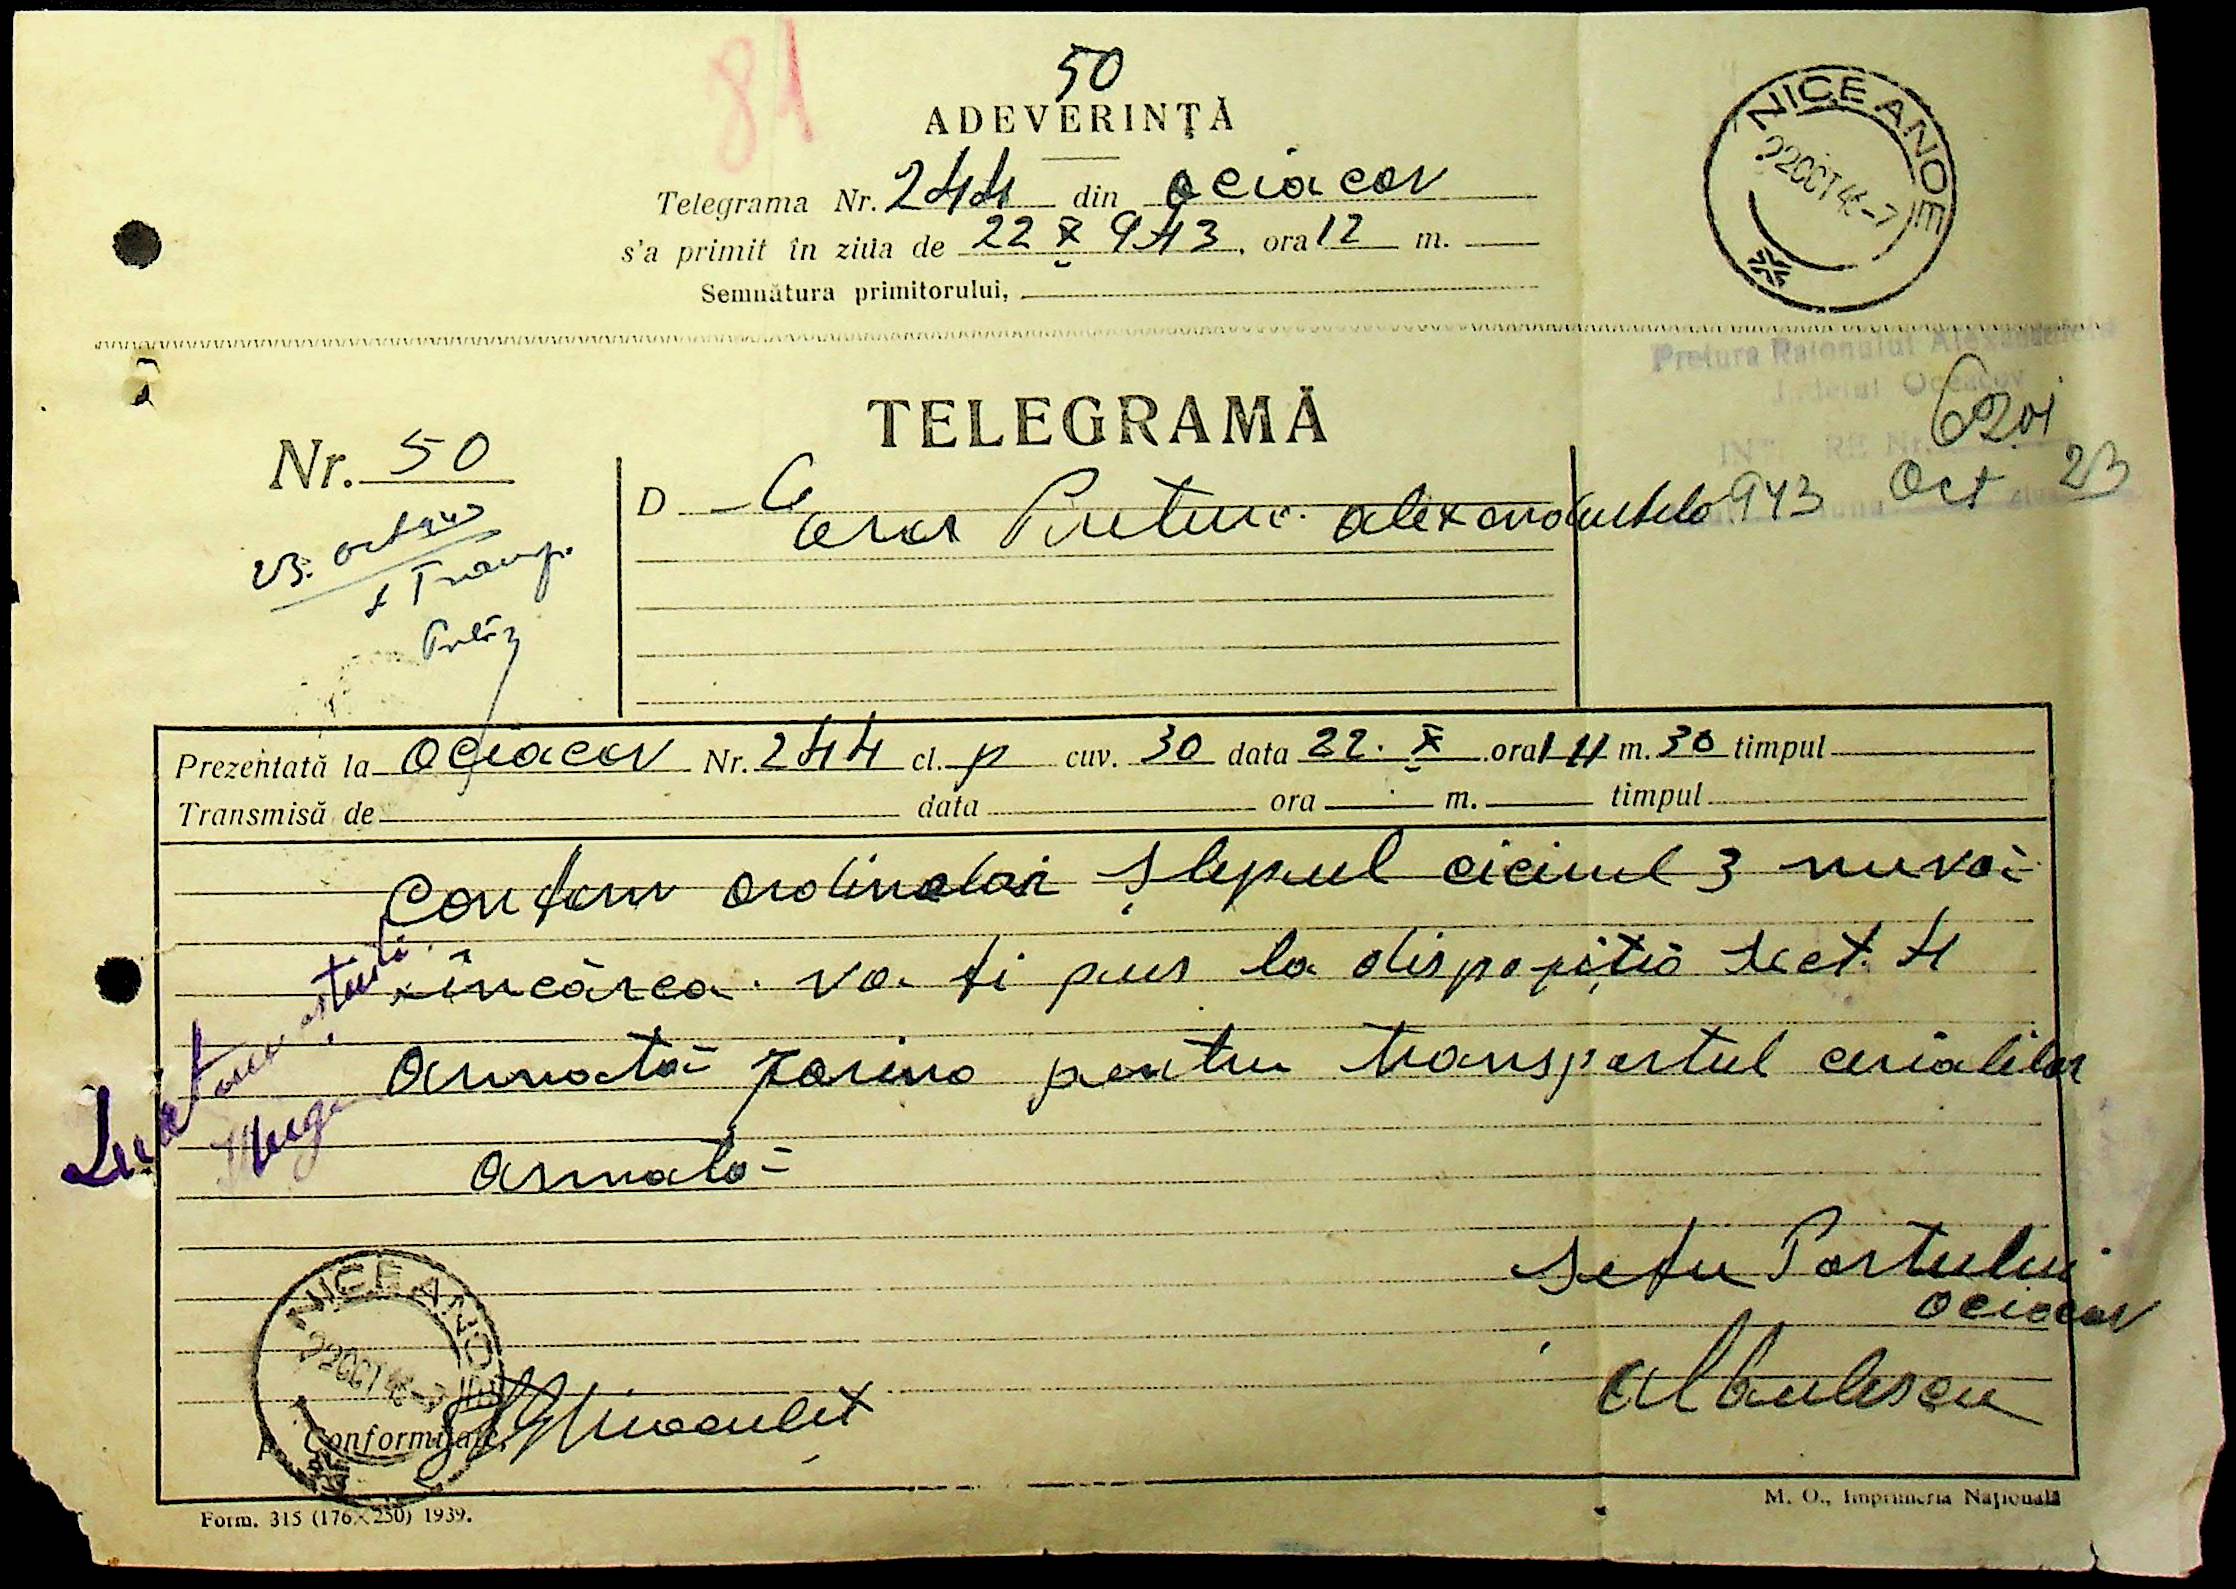 81
50
ADEVERINŢĂ
Telegrama Nr. 244 din Ociacov
s'a primit în ziua de 22 X 943, ora 12 m.
Semnătura primitorului,
NICEANOE
22OCT 4-7
Pretura Raionului Alexandrfeld
Judetul Oceacov
INT RE Nr. 6201
943 Oct 23
TELEGRAMĂ
Nr. 50
23. Oct 943
D Pretura Alexandrfeld
Prezentată la Ociacov Nr. 244 cl. p cuv. 30 data 22. X ora 11 m. 30 timpul
Transmisă de data ora m. timpul
Conform ordinelor Şlepul ciciul 3 nu va
încărca. va fi pus la dispoziția sect. 4
Armată pentru transportul cerialilor
armată
Sefu Portului
Ociacov
Albulescu
NICEANOE
22OCT 4-7
p. Conformitate,
Form. 315 (176×250) 1939.
M. O., Imprimeria Naţională